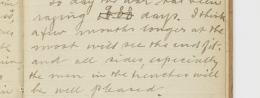 To day the war has been
raging 888 days. I think
a few months longer at the
most will see the end of it.
and all sides, especially
the men in the trenches will
be well pleased.